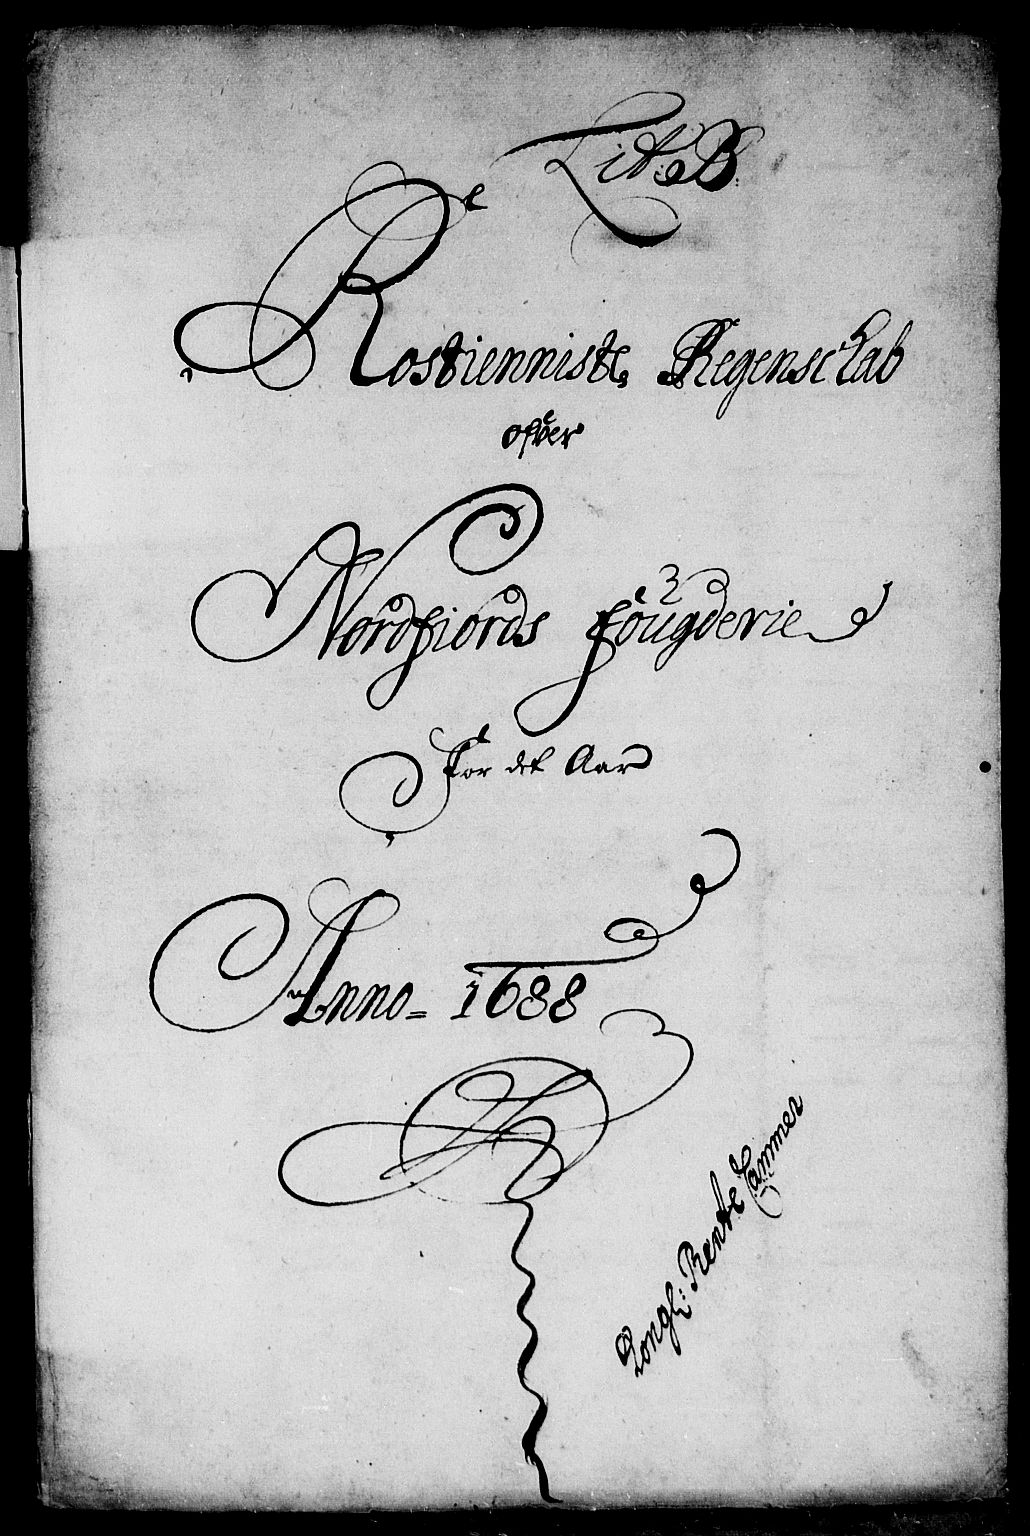 Lit: B:
Rostienniste Regenschab
ofver
Nordfiords fougderie
For det Aar
Anno = 1688
Kongl: Rente Cammer